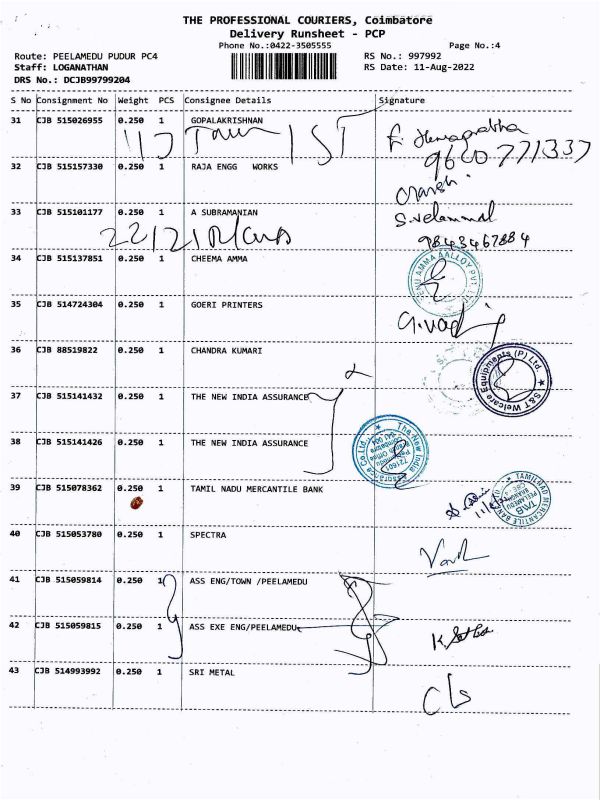 THE PROFESSIONAL COURIERS, Coimbatore
Delivery Runsheet - PCP
Phone No.:0422-3505555 Page No.:4
Route: PEELAMEDU PUDUR PC4 RS No.: 997992
Staff: LOGANATHAN RS Date: 11-Aug-2022
DRS No.: DCJB99799204
S No Consignment No Weight PCS Consignee Details Signature
31 CJB 515026955 0.250 1 GOPALAKRISHNAN
9600771337
32 CJB 515157330 0.250 1 RAJA ENGG WORKS
33 CJB 515101177 0.250 1 A SUBRAMANIAN S.velammal
9843467884
34 CJB 515137851 0.250 1 CHEEMA AMMA
35 CJB 514724304 0.250 1 GOERI PRINTERS
36 CJB 88519822 0.250 1 CHANDRA KUMARI
S&T Welcare Equipments (P) Ltd.
37 CJB 515141432 0.250 1 THE NEW INDIA ASSURANCE
38 CJB 515141426 0.250 1 THE NEW INDIA ASSURANCE
The New India Assurance Co Ltd.
39 CJB 515078362 0.250 1 TAMIL NADU MERCANTILE BANK
TAMILNAD MERCANTILE BANK
TMB
PEELAMEDU
40 CJB 515053780 0.250 1 SPECTRA
41 CJB 515059814 0.250 1 ASS ENG/TOWN /PEELAMEDU
42 CJB 515059815 0.250 1 ASS EXE ENG/PEELAMEDU
43 CJB 514993992 0.250 1 SRI METAL